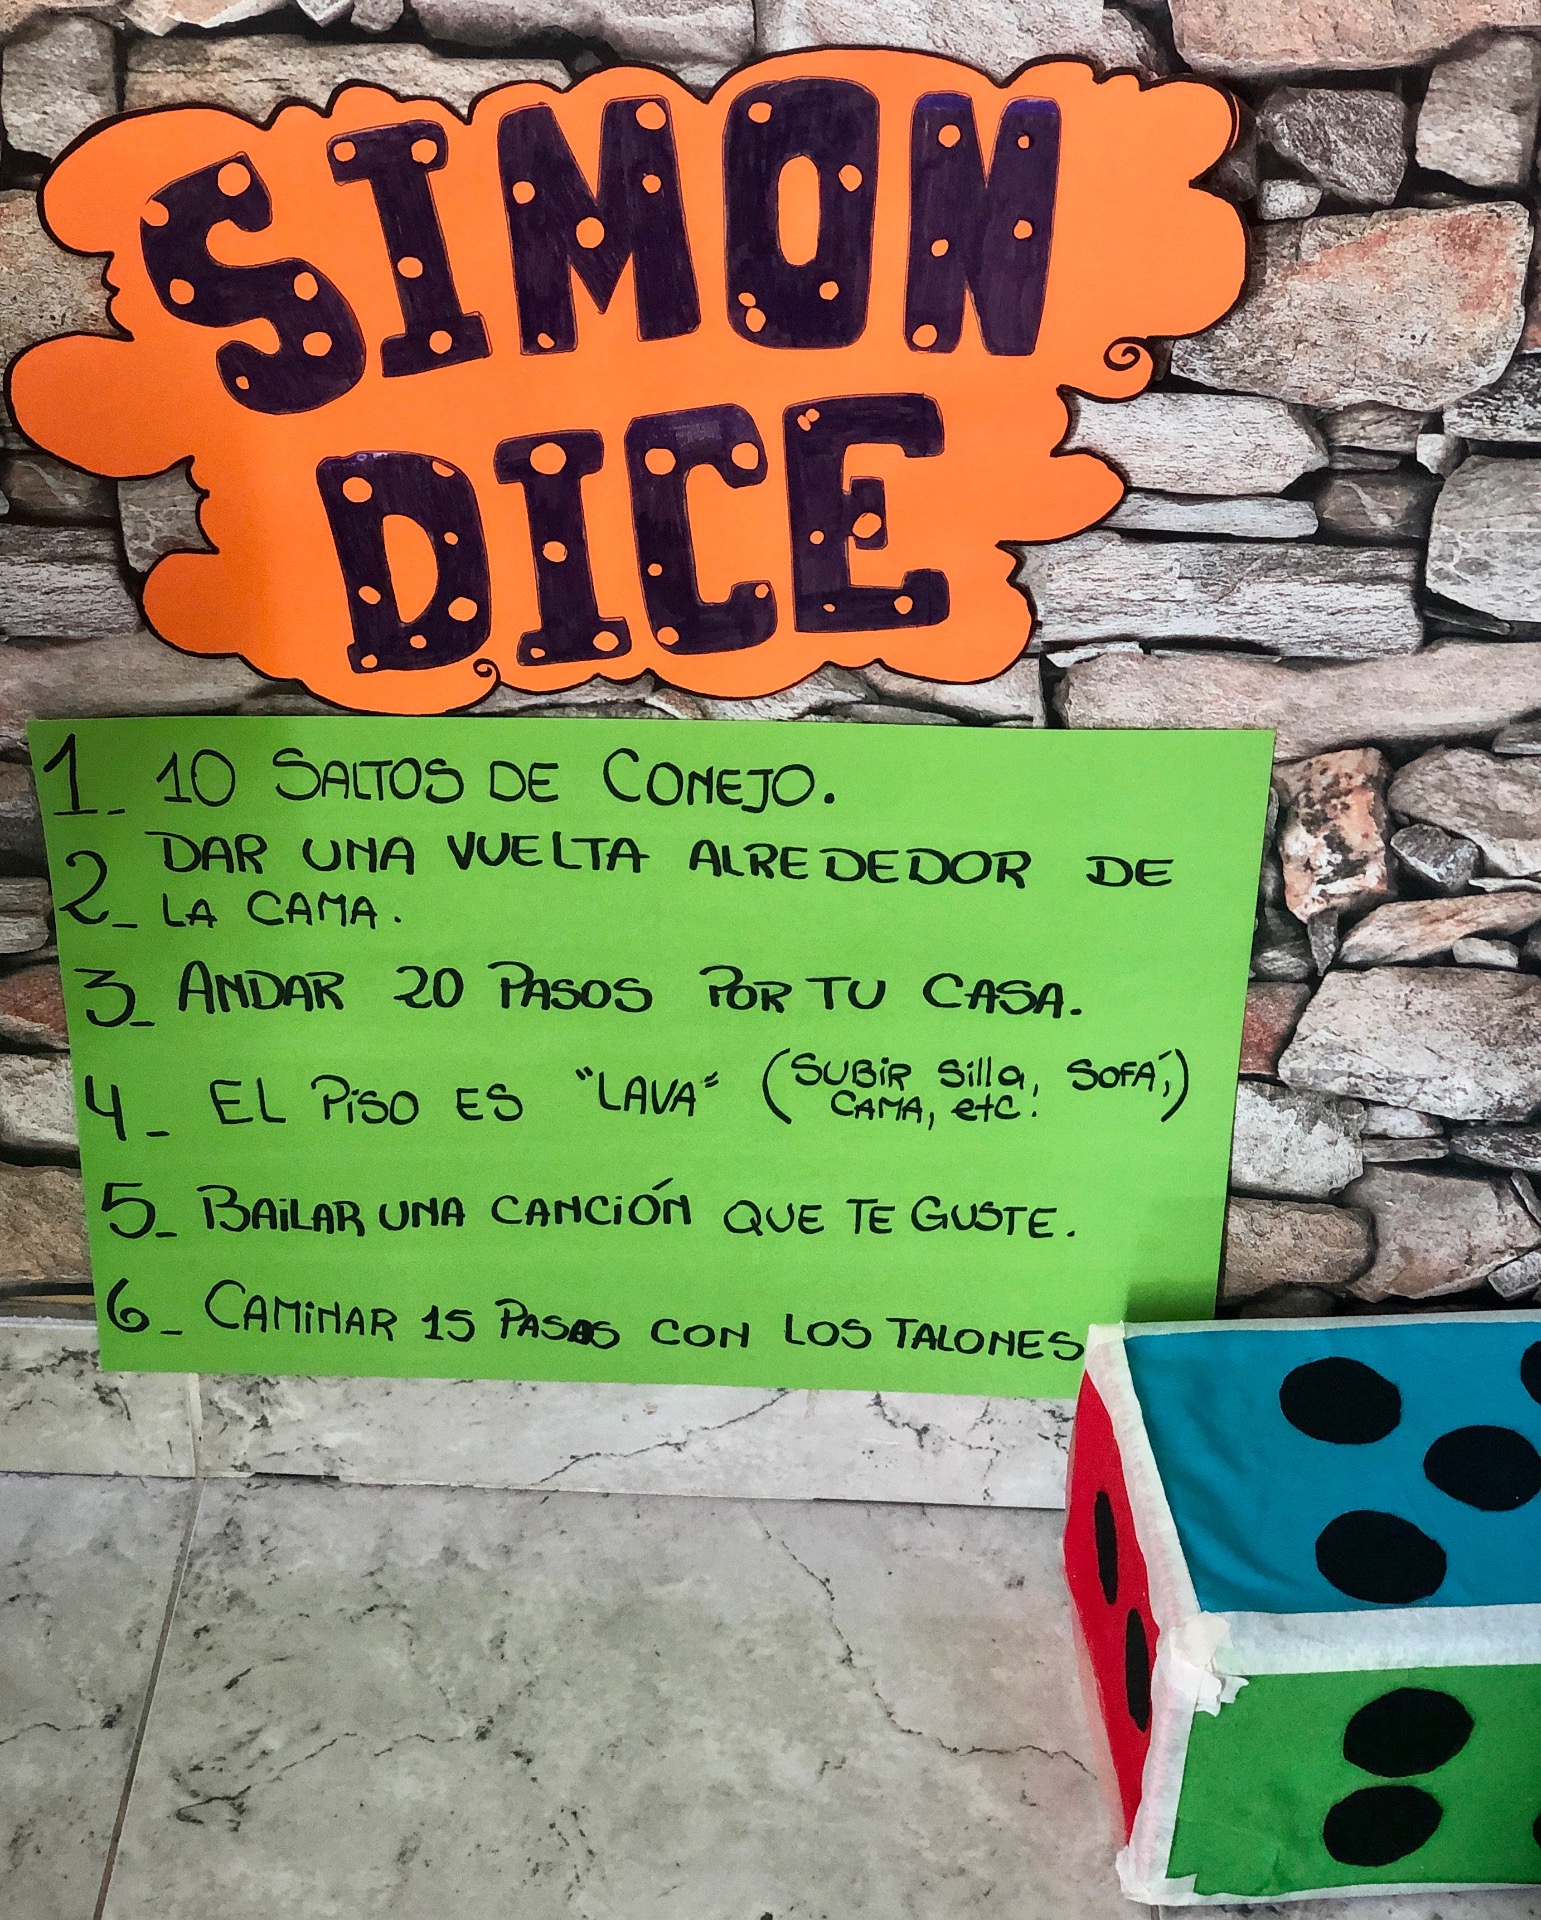 SIMON
DICE
1_ 10 SALTOS DE CONEJO.
2_ DAR UNA VUELTA ALREDEDOR DE
LA CAMA.
3_ ANDAR 20 PASOS POR TU CASA.
4_ EL PISO ES "LAVA" (SUBIR Silla, SOFÁ,
CAMA, etc.)
5_ BAILAR UNA CANCIÓN QUE TE GUSTE.
6_ CAMINAR 15 PASOS CON LOS TALONES